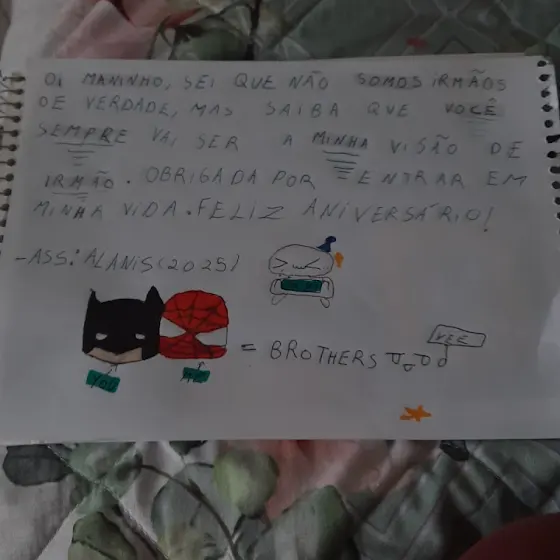 OI MANINHO, SEI QUE NÃO SOMOS IRMÃOS
DE VERDADE, MAS SAIBA QUE VOCÊ
SEMPRE VAI SER A MINHA VISÃO DE
IRMÃO. OBRIGADA POR ENTRAR EM
MINHA VIDA. FELIZ ANIVERSÁRIO!
-ASS: ALANIS (2025)
= BROTHERS
YOU